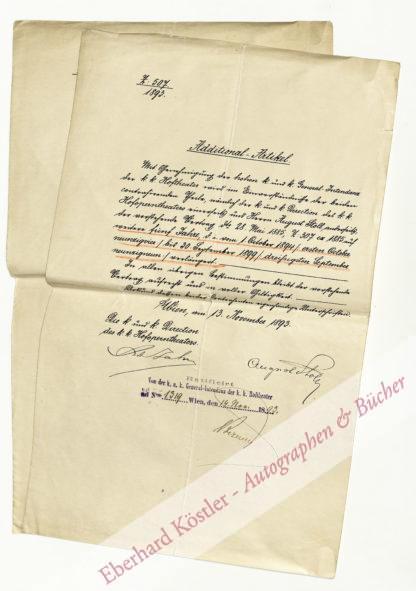 Z. 507
1893.
Additional-Artikel
Mit Genehmigung der hohen k. und k. General Intendanz
der k. k. Hoftheater wird im Einverständnisse der beiden
contrahirenden Theile, nämlich der k. und k. Direction des k. k.
Hofoperntheaters einerseits und Herrn August Stoll andererseits
der vorstehende Vertrag dto 28. Mai 1885, Z. 307 ex 1885 auf
weitere fünf Jahre, d. i. vom 1. October 1894, ersten October
neunzigvier, bis 30. September 1899, dreissigsten September
neunzigneun, verlängert.
In allen übrigen Bestimmungen bleibt der vorstehende
Vertrag aufrecht und in voller Giltigkeit.
Wien, am 13. November 1893.
Die k. und k. Direction
des k. k. Hofoperntheaters.
August Stoll
Ratificirt
Von der k. u. k. General-Intendanz der k. k. Hoftheater
Nro 1319 Wien, den 14 Nov. 1893.
Eberhard Köstler - Autographen & Bücher